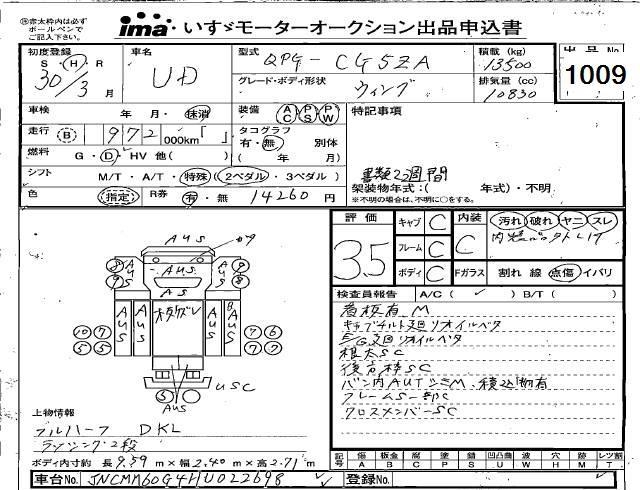 ※赤太枠内は必ず
ボールペンで
ご記入下さい。
ima いすゞモーターオークション出品申込書
初度登録 車名 型式 QPG-CG5ZA 積載 (kg) 13500
S・H・R
30/3月 UD
グレード・ボディ形状 ウィング 排気量 (cc) 10830
出品No. 1009
車検 年 月・ 抹消 装備 AC PS PW 特記事項
走行 B 972 000km「 」 タコグラフ 有・無 別体
( 年 月)
燃料 G・D・HV 他( )
書類2週間
シフト M/T・A/T・特殊(2ペダル・3ペダル)
架装物年式:( 年式)・不明
※不明の場合は、不明に○をする。
色 指定 R券 有・無 14260 円
評価 3.5
キャブ C 内装 C 汚れ 破れ ヤニ スレ
フレーム C
ボディ C Fガラス 割れ 線 点傷 イバリ
検査員報告 A/C ( ✓ ) B/T ( )
看板有M
キャブチルト廻リオイルベタ
E/G廻リオイルベタ
根太SC
後方枠SC
バン内AUTシミM、積込物有
フレームS一部C
クロスメンバーSC
AUS
AUS
AS
AUS
AUS
AUS
AUS
USC
AUS
上物情報
フルハーフ DKL
ラッシング2段
ボディ内寸約 長9.59m×幅2.40m×高2.71m
記号 傷 A 板金 B 腐 C 塗 P 錆 S 凹凸曲 U 波 W 穴 H 跡 M レツ割 T
車台No. JNCMM60G4HU022698 登録No.